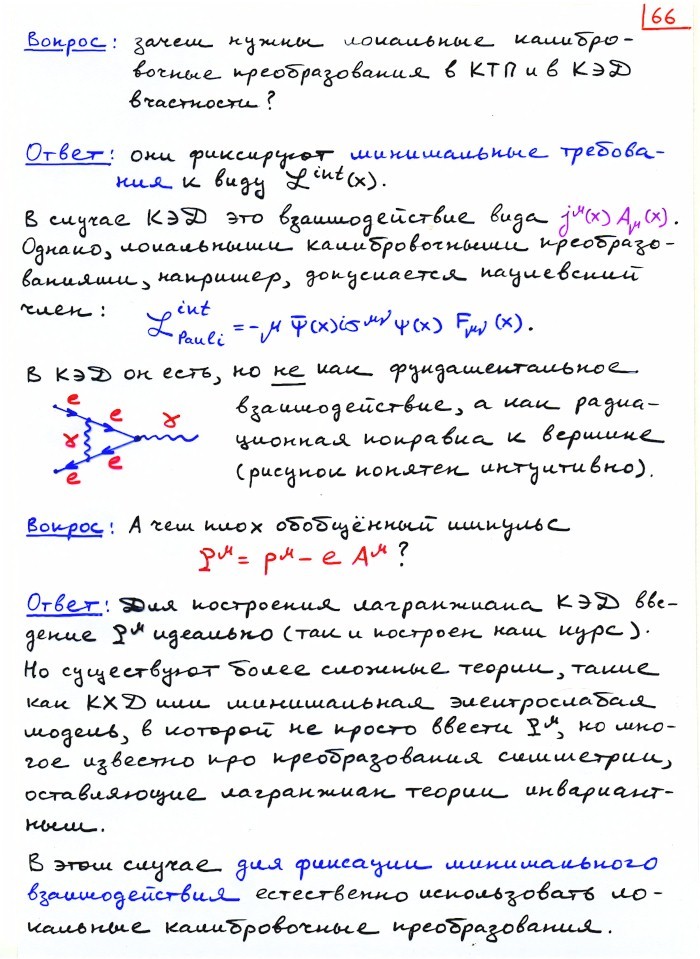 66
Вопрос: зачем нужны локальные калибро-
вочные преобразования в КТП и в КЭД
в частности?
Ответ: они фиксируют минимальные требова-
ния к виду ℒ^int(x).
В случае КЭД это взаимодействие вида j^μ(x) A_μ(x).
Однако, локальными калибровочными преобразо-
ваниями, например, допускается паулевский
член: ℒ^int_Pauli = -μ Ψ̄(x) iσ^μν Ψ(x) F_μν(x).
В КЭД он есть, но не как фундаментальное
взаимодействие, а как радиа-
ционная поправка к вершине
(рисунок понятен интуитивно).
e e γ
γ
e e
Вопрос: А чем плох обобщённый импульс
𝒫^μ = p^μ - e A^μ?
Ответ: Для построения лагранжиана КЭД вве-
дение 𝒫^μ идеально (так и построен наш курс).
Но существуют более сложные теории, такие
как КХД или минимальная электрослабая
модель, в которой не просто ввести 𝒫^μ, но мно-
гое известно про преобразования симметрии,
оставляющие лагранжиан теории инвариант-
ным.
В этом случае для фиксации минимального
взаимодействия естественно использовать ло-
кальные калибровочные преобразования.